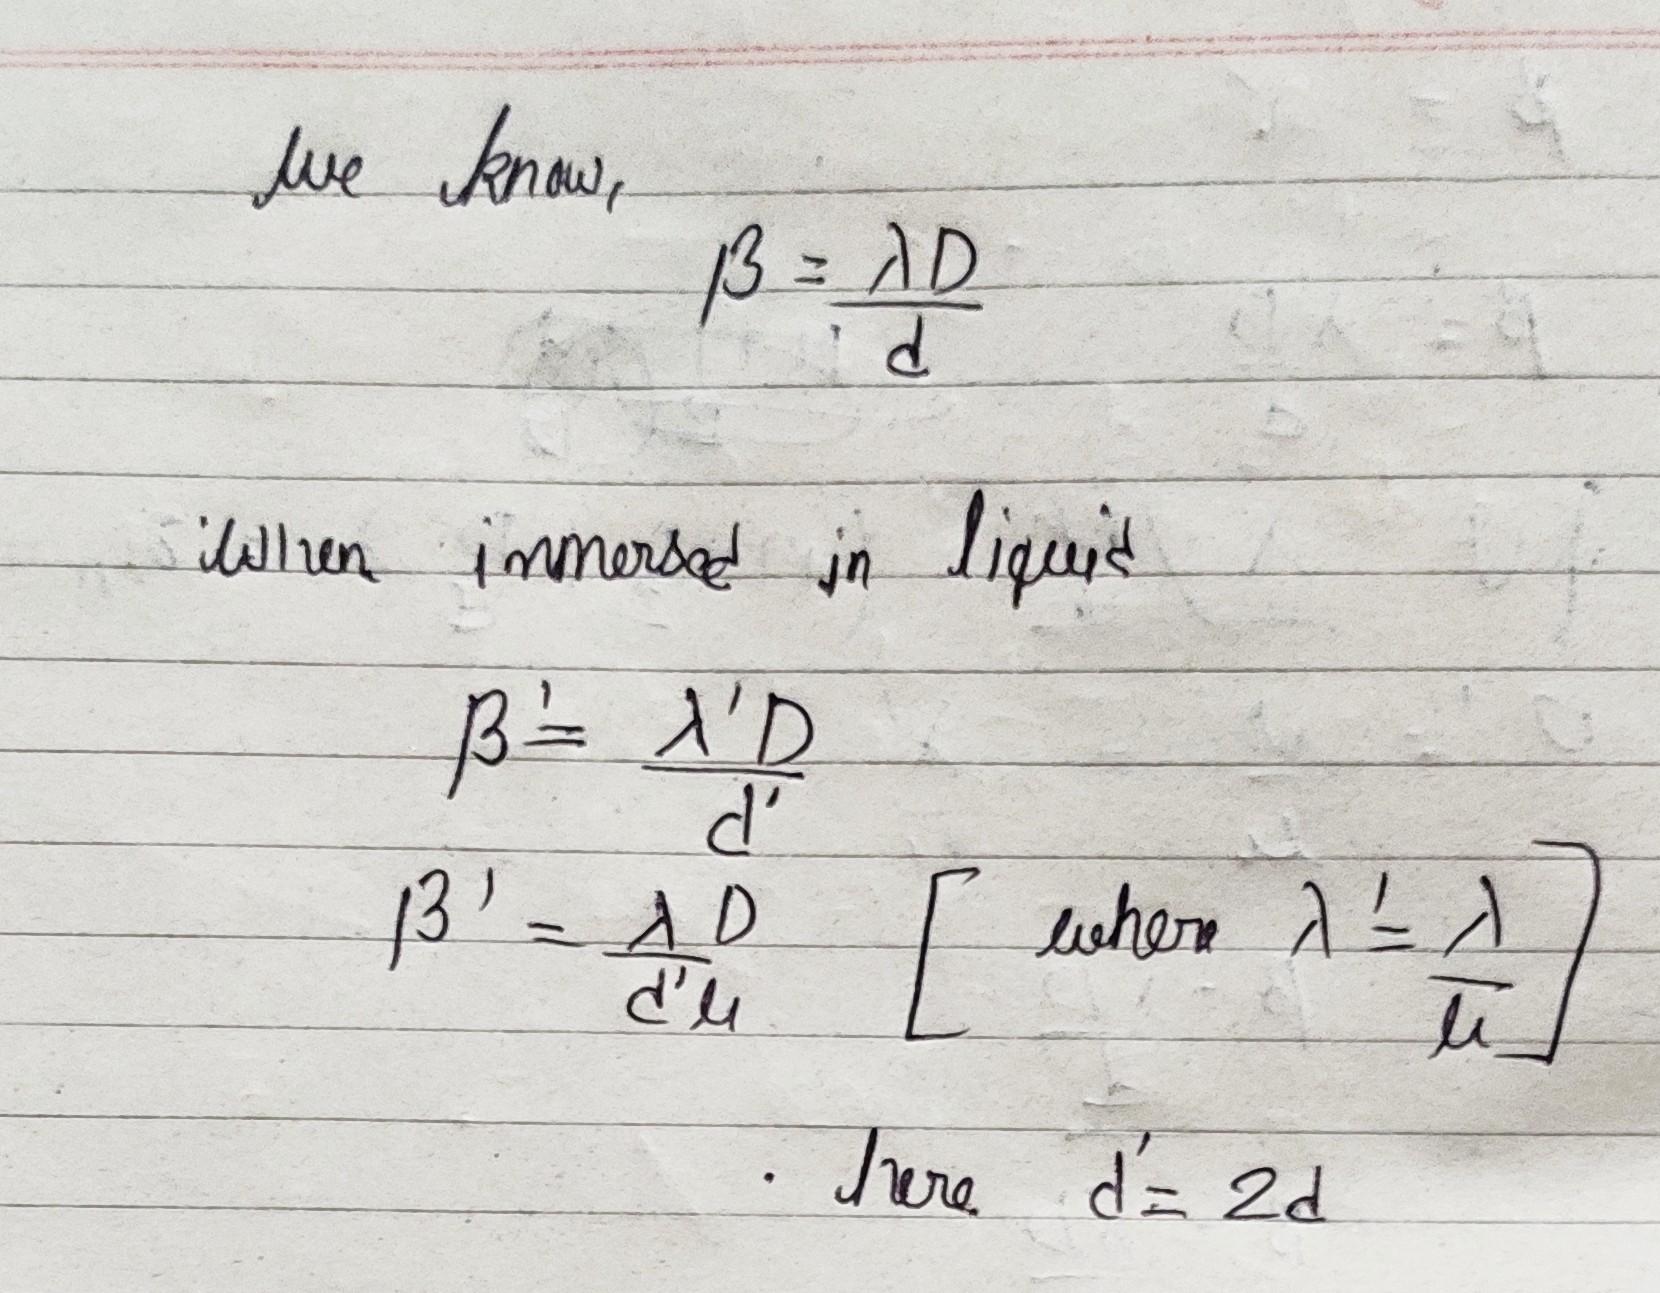 We know,
β = λD / d
When immersed in liquid
β' = λ'D / d'
β' = λD / d'μ [where λ' = λ / μ]
. here d' = 2d